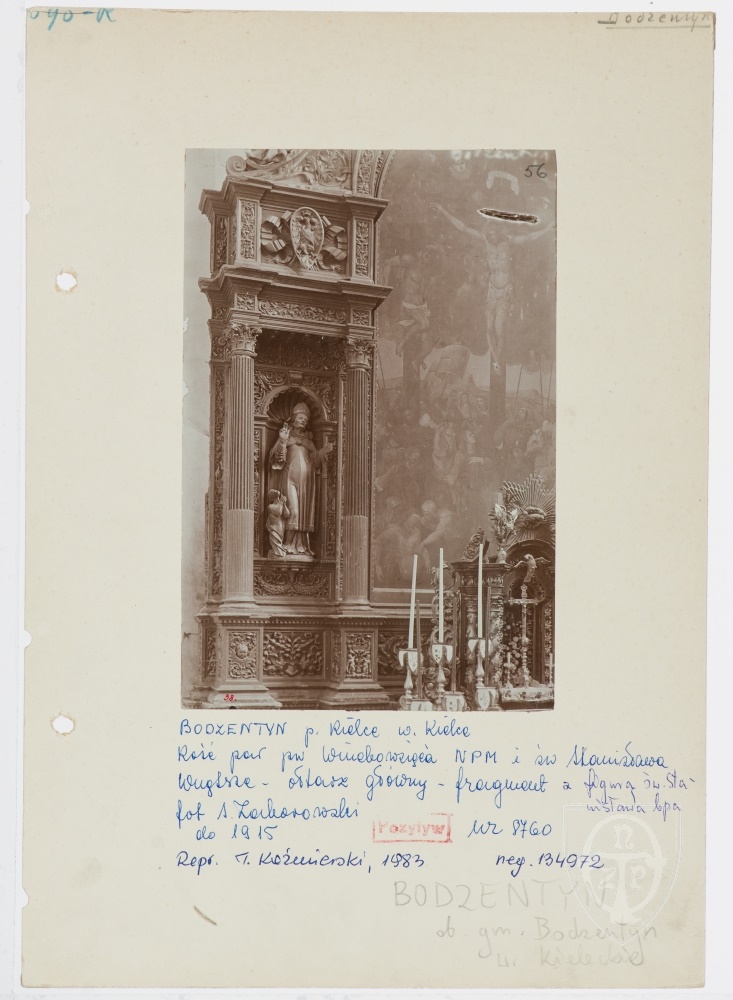 090-K
Bodzentyn
56
38.
BODZENTYN p. Kielce w. Kielce
Kość par pw Wniebowzięcia NPM i św Stanisława
wnętrze - ołtarz główny - fragment z figurą św. Sta-
nisława bpa
fot S. Zaborowski
do 1915
Pozytyw
nr 8760
Repr. T. Kaźmierski, 1983
neg. 134972
BODZENTYN
ob. gm. Bodzentyn
w. Kieleckie